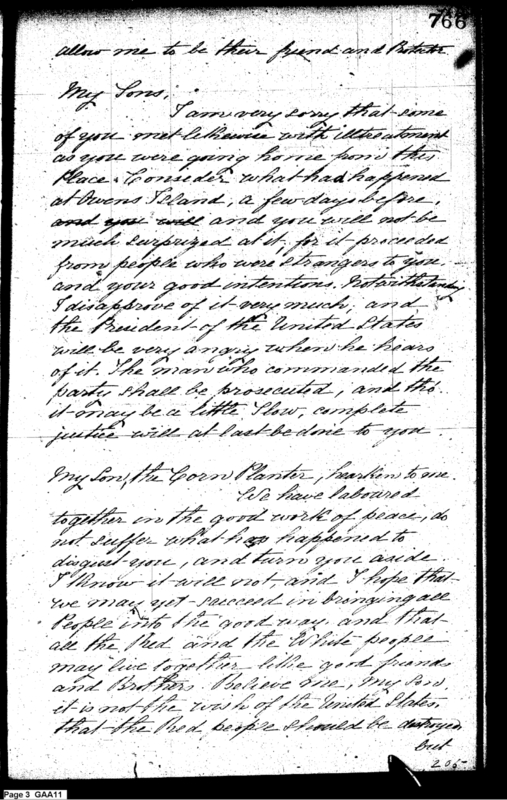 766
allow me to be their friend and Protector
My Sons,
I am very sorry that some
of you met likewise with illtreatment
as you were going home from this
Place. Consider what had happened
at Owens Island, a few days before,
and you will and you will not be
much surprized at it, for it proceeded
from people who were strangers to you
and your good intentions. Notwithstanding
I disapprove of it very much, and
the President of the United States
will be very angry when he hears
of it. The man who commanded the
party shall be prosecuted, and tho'
it may be a little slow, complete
justice will at last be done to you.
My Son, the Corn Planter, hearken to me.
We have laboured
together in the good work of peace, do
not suffer what has happened to
disgust you, and turn you aside
I know it will not and I hope that
we may yet succeed in bringing all
People into the good way, and that
all the Red and the White people
may live together like good friends
and Brothers. Believe me, my Son
it is not the wish of the United States
that the Red people should be destroyed
but
205
Page 3 GAA11